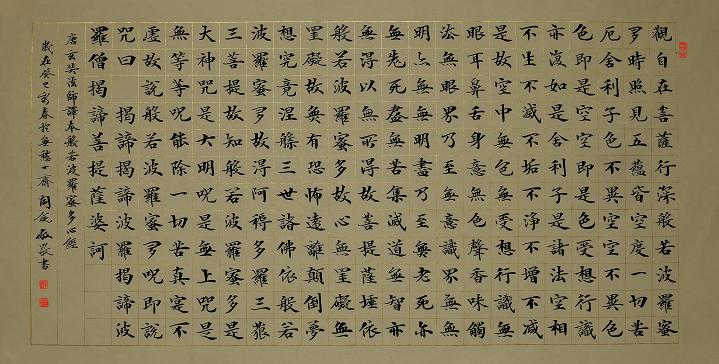 觀自在菩薩行深般若波羅蜜
多時照見五蘊皆空度一切苦
厄舍利子色不異空空不異色
色即是空空即是色受想行識
亦復如是舍利子是諸法空相
不生不滅不垢不淨不增不減
是故空中無色無受想行識無
眼耳鼻舌身意無色聲香味觸
法無眼界乃至無意識界無無
明亦無無明盡乃至無老死亦
無老死盡無苦集滅道無智亦
無得以無所得故菩提薩埵依
般若波羅蜜多故心無罣礙無
罣礙故無有恐怖遠離顛倒夢
想究竟涅槃三世諸佛依般若
波羅蜜多故得阿耨多羅三藐
三菩提故知般若波羅蜜多是
大神咒是大明咒是無上咒是
無等等呪能除一切苦真寔不
虛故說般若波羅蜜多呪即說
咒曰 揭諦揭諦波羅揭諦波
羅僧揭諦菩提薩婆訶
唐玄奘法師譯本般若波羅蜜多心經
歲在癸巳新春於 齋 敬書